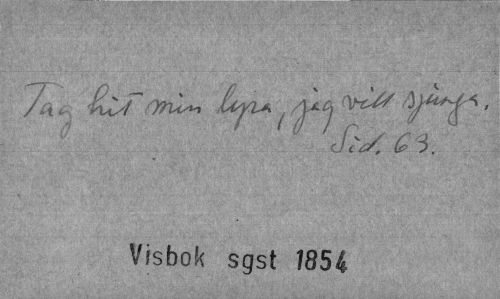 Tag hit min lyra, jag vill sjunga.
Sid. 63.
Visbok sgst 1854